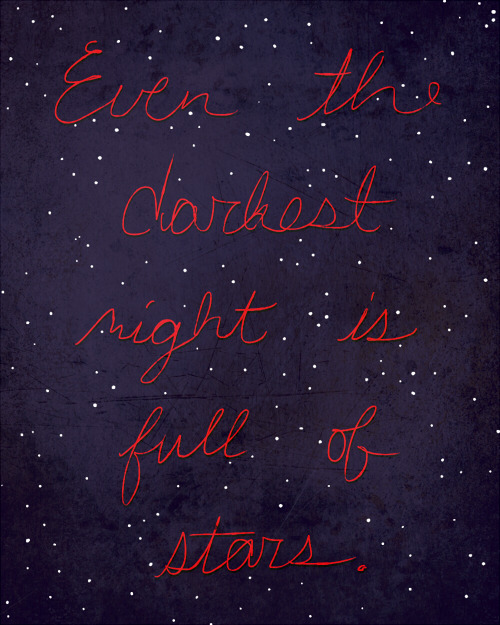 Even the
darkest
night is
full of
stars.